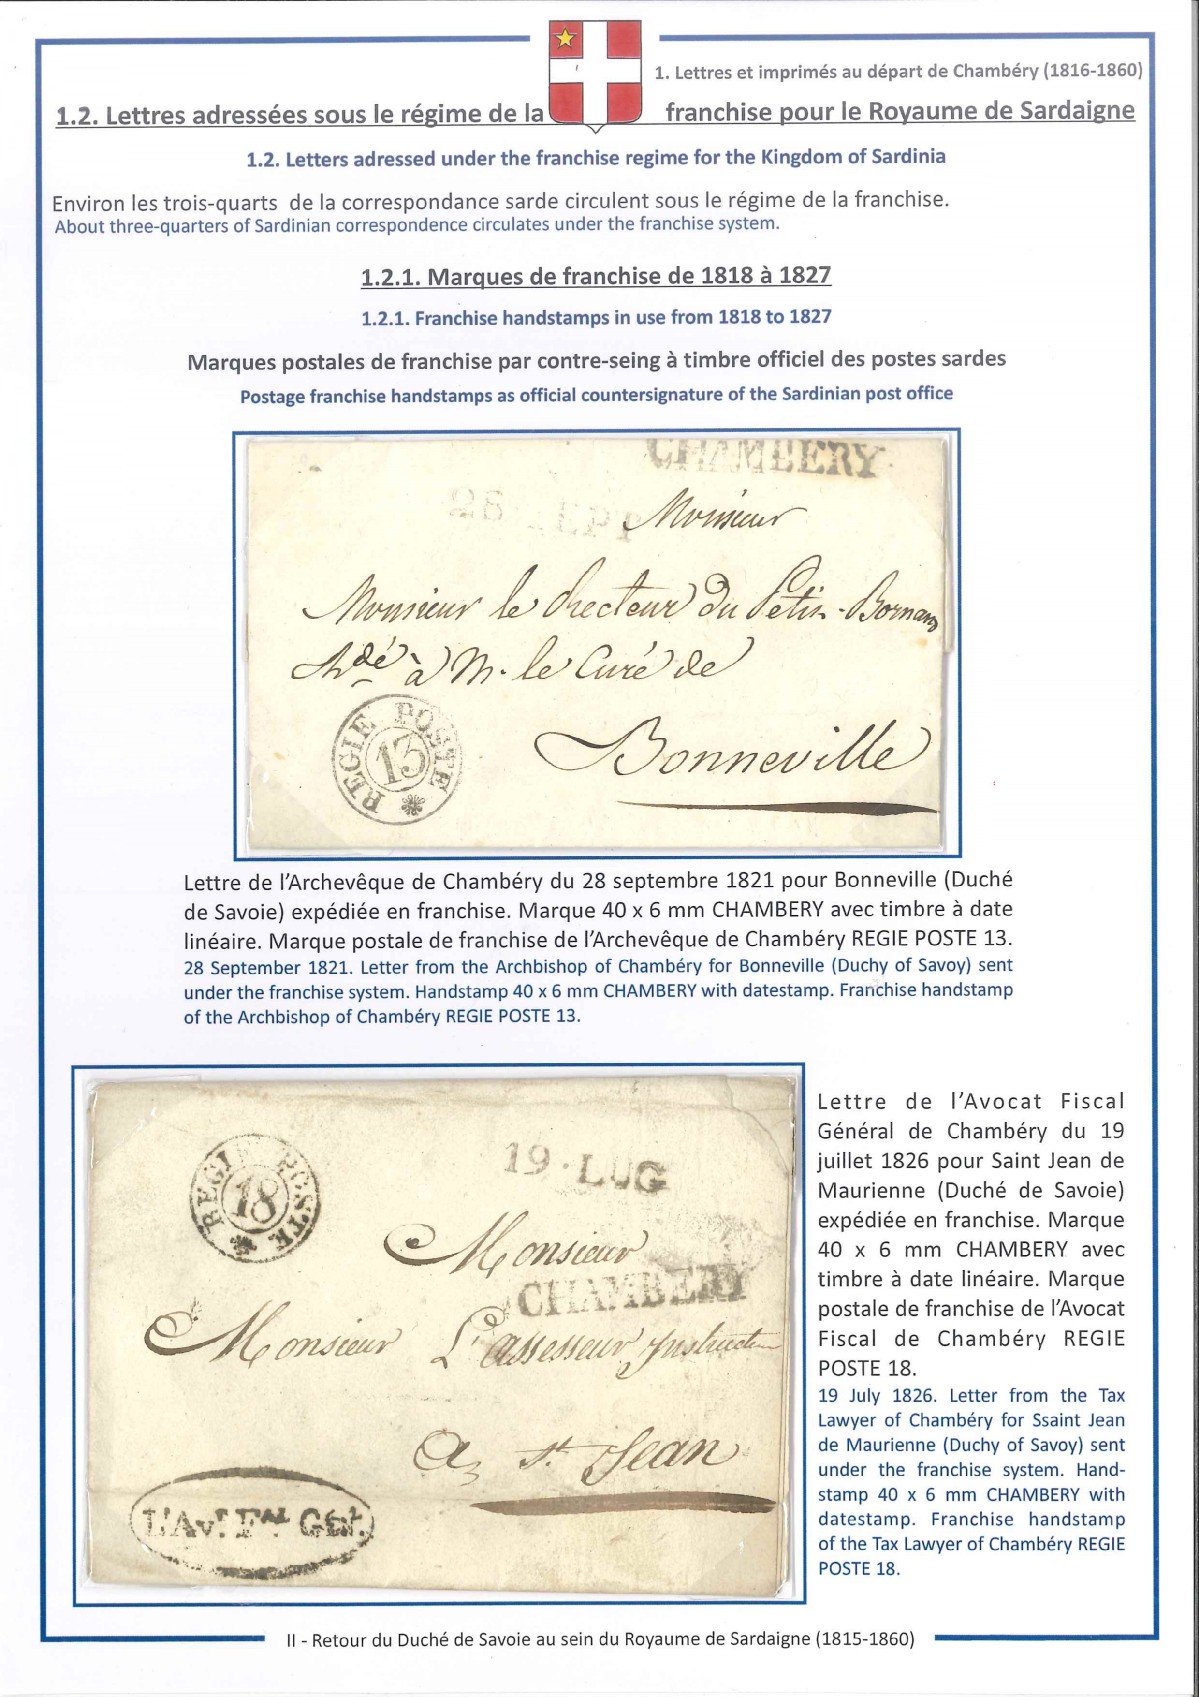 1. Lettres et imprimés au départ de Chambéry (1816-1860)
1.2. Lettres adressées sous le régime de la franchise pour le Royaume de Sardaigne
1.2. Letters adressed under the franchise regime for the Kingdom of Sardinia
Environ les trois-quarts de la correspondance sarde circulent sous le régime de la franchise.
About three-quarters of Sardinian correspondence circulates under the franchise system.
1.2.1. Marques de franchise de 1818 à 1827
1.2.1. Franchise handstamps in use from 1818 to 1827
Marques postales de franchise par contre-seing à timbre officiel des postes sardes
Postage franchise handstamps as official countersignature of the Sardinian post office
CHAMBERY
Monsieur
Monsieur le Recteur du Petit-Bornand
à M. le Curé de
Bonneville
REGIE POSTE
13
Lettre de l'Archevêque de Chambéry du 28 septembre 1821 pour Bonneville (Duché
de Savoie) expédiée en franchise. Marque 40 x 6 mm CHAMBERY avec timbre à date
linéaire. Marque postale de franchise de l'Archevêque de Chambéry REGIE POSTE 13.
28 September 1821. Letter from the Archbishop of Chambéry for Bonneville (Duchy of Savoy) sent
under the franchise system. Handstamp 40 x 6 mm CHAMBERY with datestamp. Franchise handstamp
of the Archbishop of Chambéry REGIE POSTE 13.
REGIE POSTE
18
19 · LUG
Monsieur
CHAMBERY
Monsieur L'assesseur Instructeur
A St. Jean
L'Avt. Fal. Gal.
Lettre de l'Avocat Fiscal
Général de Chambéry du 19
juillet 1826 pour Saint Jean de
Maurienne (Duché de Savoie)
expédiée en franchise. Marque
40 x 6 mm CHAMBERY avec
timbre à date linéaire. Marque
postale de franchise de l'Avocat
Fiscal de Chambéry REGIE
POSTE 18.
19 July 1826. Letter from the Tax
Lawyer of Chambéry for Ssaint Jean
de Maurienne (Duchy of Savoy) sent
under the franchise system. Hand-
stamp 40 x 6 mm CHAMBERY with
datestamp. Franchise handstamp
of the Tax Lawyer of Chambéry REGIE
POSTE 18.
II - Retour du Duché de Savoie au sein du Royaume de Sardaigne (1815-1860)